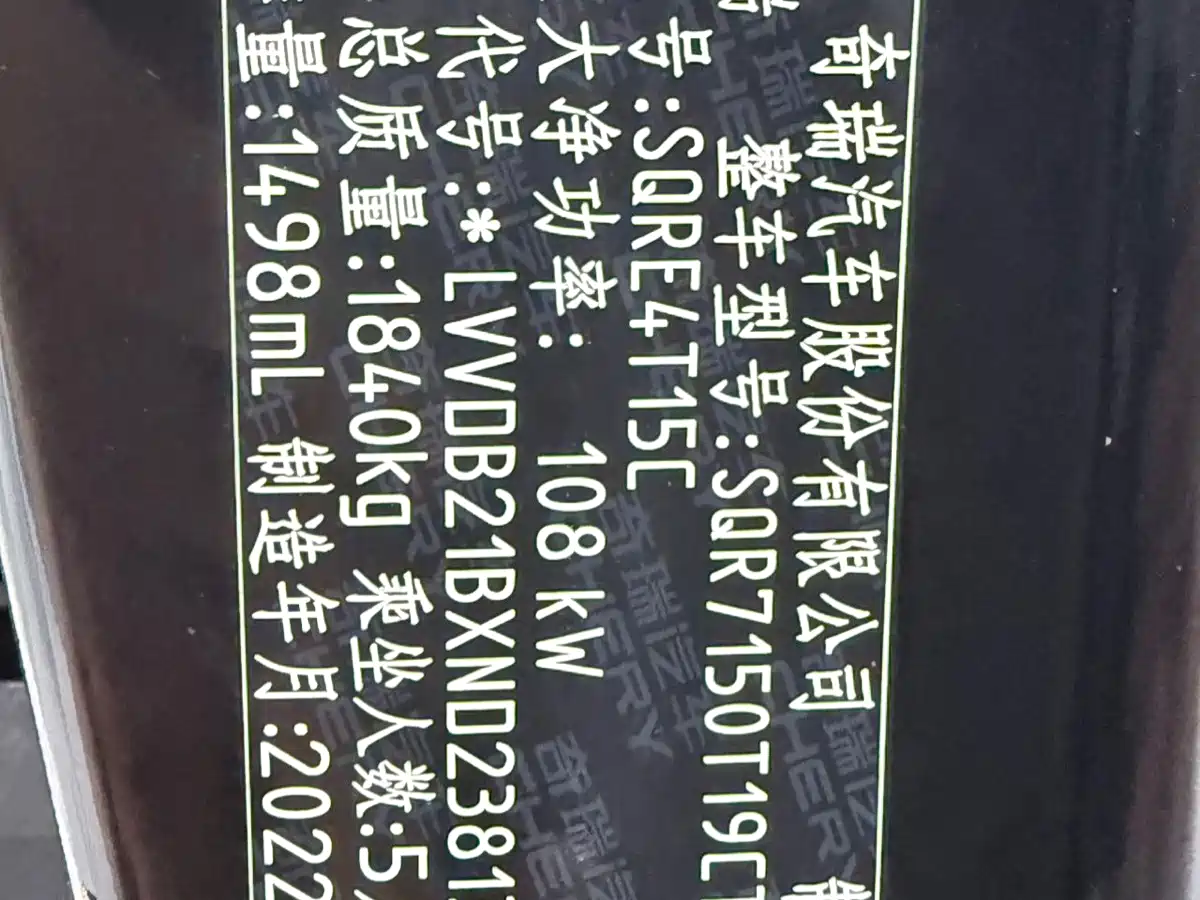 奇瑞汽车股份有限公司
整车型号:SQR7150T19CT
号:SQRE4T15C
大净功率: 108kW
代号:*LVVDB21BXND2381
总质量:1840kg 乘坐人数:5人
量:1498mL 制造年月:2022
奇瑞汽车
CHERY